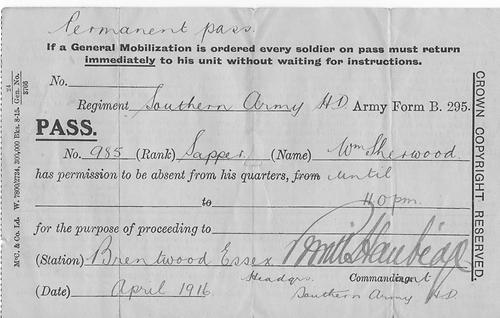 Permanent pass.
If a General Mobilization is ordered every soldier on pass must return
immediately to his unit without waiting for instructions.
No.
Regiment Southern Army HD Army Form B. 295.
PASS.
No. 985 (Rank) Sapper. (Name) Wm Sherwood
has permission to be absent from his quarters, from until
to 11.0 pm.
for the purpose of proceeding to
(Station) Brentwood Essex
Headqrs. Commanding
(Date) April 1916 Southern Army HD.
CROWN COPYRIGHT RESERVED.
McC. & Co. Ld. W. 7800/2724, 300,000 Bks. 8-15. Gen. No.